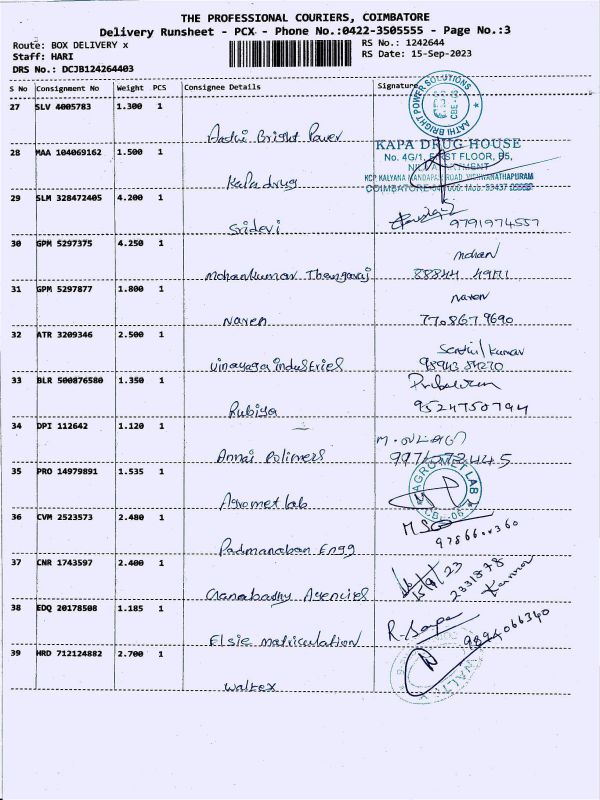 THE PROFESSIONAL COURIERS, COIMBATORE
Delivery Runsheet - PCX - Phone No.:0422-3505555 - Page No.:3
Route: BOX DELIVERY x
RS No.: 1242644
Staff: HARI
RS Date: 15-Sep-2023
DRS No.: DCJB124264403
S No Consignment No Weight PCS Consignee Details Signature
27 SLV 4005783 1.300 1
AATHI BRIGHT POWER SOLUTIONS
CBE-
Aathi Bright Power
28 MAA 104069162 1.500 1
KAPA DRUG HOUSE
No. 4G/1, FIRST FLOOR,
KCP KALYANA MANDAPAM ROAD, VISHWANATHAPURAM
COIMBATORE
Kapa drug
29 SLM 328472405 4.200 1
Sridevi
9791974557
30 GPM 5297375 4.250 1
mohan
mohankumar Thangaraj
88844
31 GPM 5297877 1.800 1
naren
Naren
770867 9690
32 ATR 3209346 2.500 1
Senthil kumar
Vinayaga industries
33 BLR 500876580 1.350 1
Rubiya
9524750794
34 DPI 112642 1.120 1
Annai Polimers
35 PRO 14979891 1.535 1
AGROMET LAB
CBE-06
Agromet lab
36 CVM 2523573 2.480 1
Padmanaban Engg
37 CNR 1743597 2.400 1
15/9/23
2331878
Kanna
Ganabathy Agencies
38 EDQ 20178508 1.185 1
9894066340
Elsie matriculation
39 HRD 712124882 2.700 1
WALTEX
waltex